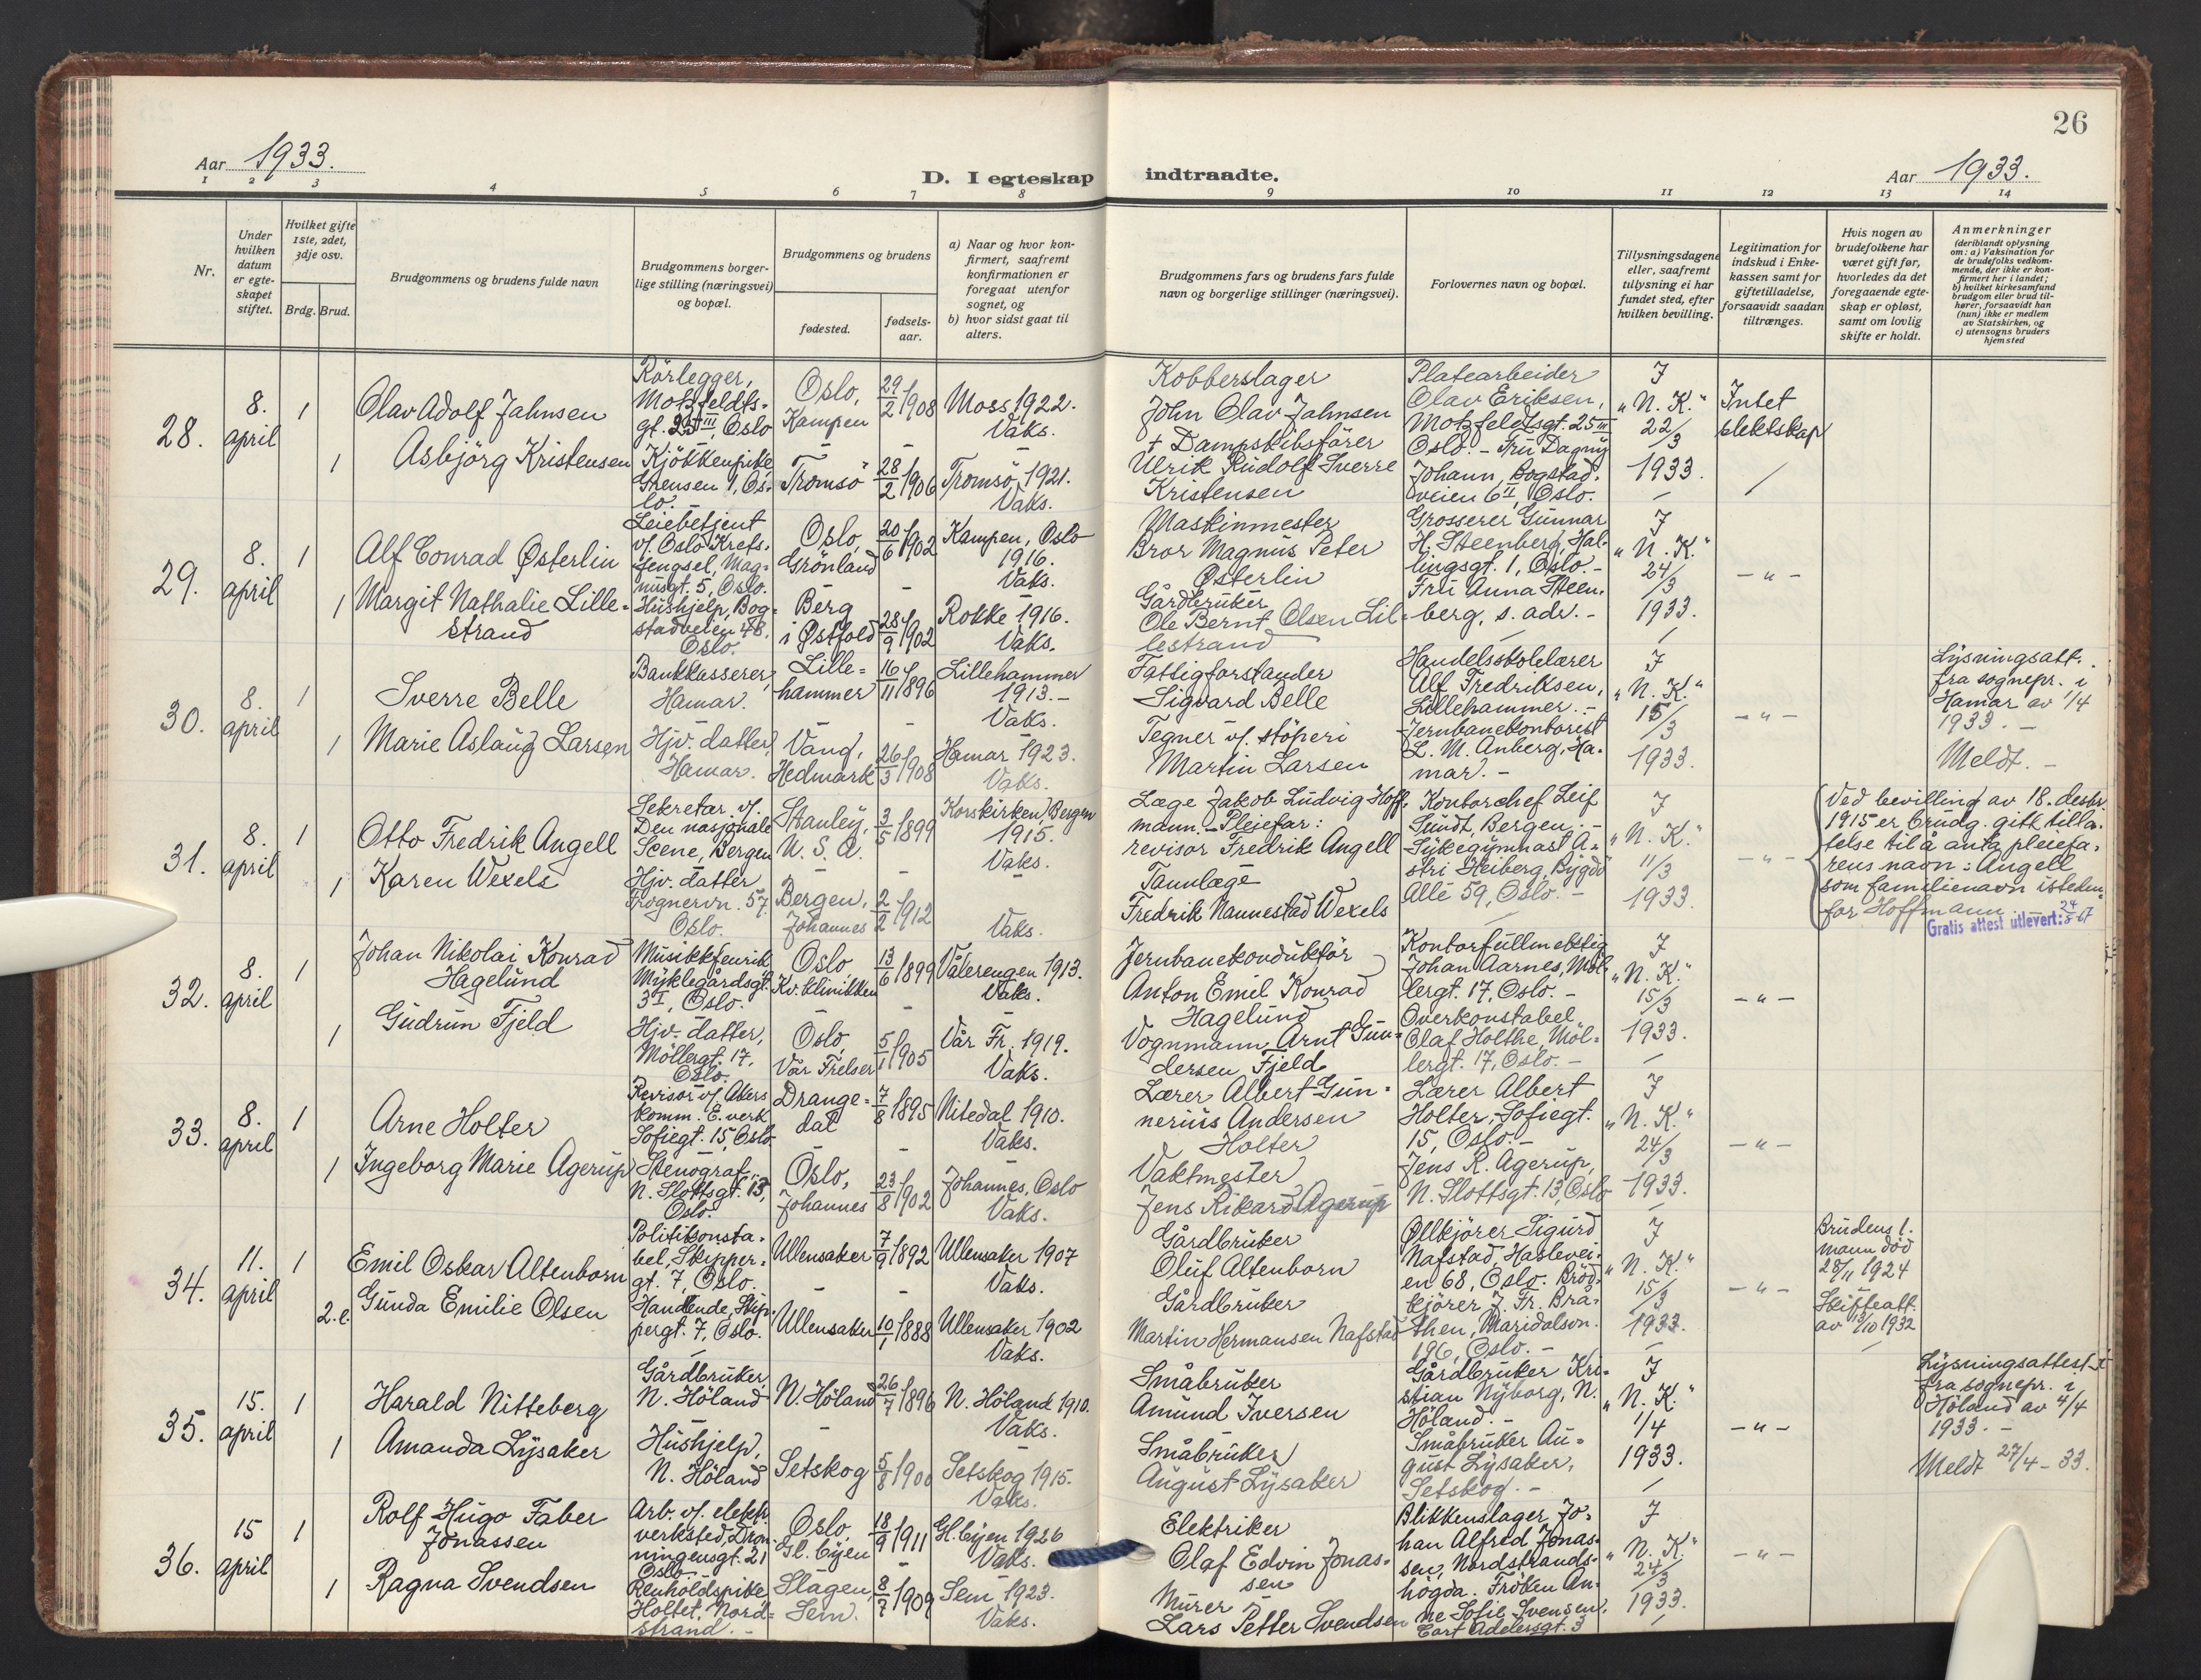 26
Aar 1933.
D. I egteskap indtraadte.
Aar 1933.
1 2 3 4 5 6 7 8 9 10 11 12 13 14
Nr.
Under hvilken datum er egte- skapet stiftet.
Hvilket gifte 1ste, 2det, 3dje osv.
Brdg. Brud.
Brudgommens og brudens fulde navn
Brudgommens borger- lige stilling (næringsvei) og bopæl.
Brudgommens og brudens
fødested.
fødsels- aar.
a) Naar og hvor kon- firmert, saafremt konfirmationen er foregaat utenfor sognet, og
b) hvor sidst gaat til alters.
Brudgommens fars og brudens fars fulde navn og borgerlige stillinger (næringsvei).
Forlovernes navn og bopæl.
Tillysningsdagene eller, saafremt tillysning ei har fundet sted, efter hvilken bevilling.
Legitimation for indskud i Enke- kassen samt for giftetilladelse, forsaavidt saadan tiltrænges.
Hvis nogen av brudefolkene har været gift før, hvorledes da det foregaaende egte- skap er opløst, samt om lovlig skifte er holdt.
Anmerkninger
(deriblandt oplysning om: a) Vaksination for de brudefolks vedkom- mende, der ikke er kon- firmert her i landet; b) hvilket kirkesamfund brudgom eller brud til- hører, forsaavidt han (hun) ikke er medlem av Statskirken, og c) utensogns bruders hjemsted
28.
8. april
1
Olav Adolf Jahnsen
Rörlegger, Motzfeldts- gt. 25 III Oslo
Oslo, Kampen
29/2 1908
Moss 1922. Vaks.
Kobberslager John Olav Jahnsen
Platearbeider Olav Eriksen, Motzfeldtsgt. 25 III Oslo. - Fru Dagny Johann, Bogstad- veien 6 II, Oslo.
I „N. K." 22/3 1933.
Intet slektskap
1
Asbjörg Kristensen
Kjökkenpike Grensen 1, Os- lo.
Tromsö
28/2 1906
Tromsö 1921. Vaks.
+ Dampskibsförer Ulrik Rudolf Sverre Kristensen
29.
8. april
1
Alf Conrad Østerlin
Leiebetjent v/ Oslo Krets- fengsel, Mag- nusgt. 5, Oslo.
Oslo, Grönland
20/6 1902
Kampen, Oslo 1916. Vaks.
Maskinmester Bror Magnus Peter Østerlin
Grosserer Gunnar H. Steenberg, Hal- lingsgt. 1, Oslo. - Fru Anna Steen- berg, s. adr. -
I „N. K." 24/3 1933.
- " -
1
Margit Nathalie Lille- strand
Hushjelp, Bog- stadveien 48, Oslo.
Berg i Østfold
28/9 1902
Rokke 1916. Vaks.
Gårdbruker Ole Bernt Olsen Lil- lestrand
30.
8. april
1
Sverre Belle
Bankkasserer, Hamar.
Lille- hammer
16/11 1896
Lillehammer 1913. - Vaks.
Fattigforstander Sigvard Belle
Handelsskolelærer Alf Fredriksen, Lillehammer. - Jernbanekontorist L. M. Anberg, Ha- mar. -
I „N. K." 15/3 1933.
- " -
Lysningsatt. fra sognepr. i Hamar av 1/4 1933. -
Meldt. -
1
Marie Aslaug Larsen
Hjv. datter, Hamar.
Vang, Hedmark
26/3 1908
Hamar 1923. Vaks.
Tegner v/ støperi Martin Larsen
31.
8. april
1
Otto Fredrik Angell
Sekretær v/ Den nasjonale Scene, Bergen
Stanley, U. S. A.
3/5 1899
Korskirken, Bergen 1915. Vaks.
Læge Jakob Ludvig Hoff- mann. - Pleiefar: revisor Fredrik Angell
Kontorchef Leif Sundt, Bergen. - Sykegymnast A- stri Heiberg, Bygdö Allé 59, Oslo. -
I „N. K." 11/3 1933.
- " -
Ved bevilling av 18. desbr. 1915 er brudg. gitt tilla- telse til å anta pleiefa- rens navn: Angell som familienavn isteden- for Hoffmann
Gratis attest utlevert: 24/5-67
1
Karen Wexels
Hjv. datter Frognervn. 57, Oslo.
Bergen, Johannes
2/2 1912
Vaks.
Tannlæge Fredrik Nannestad Wexels
32.
8. april
1
Johan Nikolai Konrad Hagelund
Musikkfenrik Myklegårdsgt. 3 I, Oslo.
Oslo, Kv. klinikken
13/6 1899
Vålerengen 1913. Vaks.
Jernbanekonduktör Anton Emil Konrad Hagelund
Kontorfullmektig Johan Aarnes, Möl- lergt. 17, Oslo. - Overkonstabel Olaf Holthe, Möl- lergt. 17, Oslo. -
I „N. K." 15/3 1933.
- " -
1
Gudrun Fjeld
Hjv. datter, Möllergt. 17, Oslo.
Oslo, Vår Frelser
5/1 1905
Vår Fr. 1919. Vaks.
Vognmann Arnt Gun- dersen Fjeld
33.
8. april
1
Arne Holter
Revisor v/ Akers komm. E. verk Sofiegt. 15, Oslo
Drange- dal
7/8 1895
Nitedal 1910. Vaks.
Lærer Albert Gun- nerius Andersen Holter
Lærer Albert Holter, Sofiegt. 15, Oslo. - Jens R. Agerup, N. Slottsgt. 13, Oslo
I „N. K." 24/3 1933.
- " -
1
Ingeborg Marie Agerup
Stenograf, N. Slottsgt. 13, Oslo.
Oslo, Johannes
23/8 1902
Johannes, Oslo Vaks.
Vaktmester Jens Rikard Agerup
34.
11. april
1
Emil Oskar Altenborn
Politikonsta- bel, Skipper- gt. 7, Oslo.
Ullensaker
7/9 1892
Ullensaker 1907 Vaks.
Gårdbruker Oluf Altenborn
Ølkjörer Sigurd Nafstad, Haslevei- en 68, Oslo. Bröd- kjörer J. Fr. Brå- then, Maridalsvn. 196, Oslo. -
I „N. K." 15/3 1933.
- " -
Brudens 1. mann död 28/11 1924 Skifteatt. av 13/10 1932
2. e.
Gunda Emilie Olsen
Handlende, Skip- pergt. 7, Oslo.
Ullensaker
10/1 1888
Ullensaker 1902 Vaks.
Gårdbruker Martin Hermansen Nafstad
35.
15. april
1
Harald Nitteberg
Gårdbruker N. Höland
N. Höland
26/7 1896
N. Höland 1910. Vaks.
Småbruker Amund Iversen
Gårdbruker Kri- stian Nyborg, N. Höland. - Småbruker Au- gust Lysaker, Setskog. -
I „N. K." 1/4 1933.
- " -
Lysningsattest fra sognepr. i Höland av 4/4 1933. -
Meldt 27/4 - 33.
1
Amanda Lysaker
Hushjelp, N. Höland
Setskog
5/8 1900
Setskog 1915. Vaks.
Småbruker August Lysaker
36.
15 april
1
Rolf Hugo Faber Jonassen
Arb. v/ elektr. verksted, Dron- ningensgt. 21 Oslo.
Oslo, Gl. byen
18/9 1911
Gl. byen 1926 Vaks.
Elektriker Olaf Edvin Jonas- sen
Blikkenslager Jo- han Alfred Jonas- sen, Nordstrands- högda. Fröken An- ne Sofie Svensen, Cort Adelersgt. 3
I „N. K." 24/3 1933.
- " -
1
Ragna Svendsen
Renholdspike Holtet, Nord- strand. -
Slagen, Sem.
8/7 1909
Sem 1923. Vaks.
Murer Lars Petter Svendsen